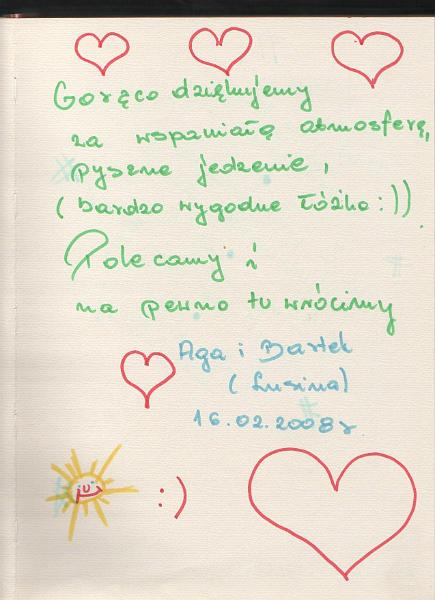 Gorąco dziękujemy
za wspaniałą atmosferę,
pyszne jedzenie,
(bardzo wygodne łóżko:))
Polecamy i
na pewno tu wrócimy
Aga i Bartek
(Lusina)
16.02.2008r
:)